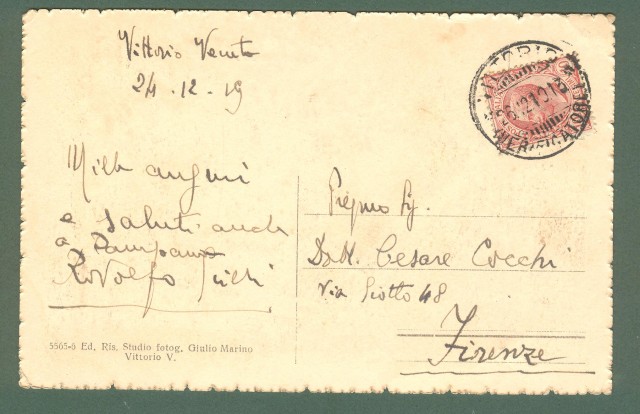 Vittorio Veneto
24 - 12 - 19
Mille auguri
e saluti anche
a
Rodolfo
Pregmo Sig.
Dott. Cesare Cocchi
Via Giotto 48
Firenze
5565-8 Ed. Ris. Studio fotog. Giulio Marino
Vittorio V.